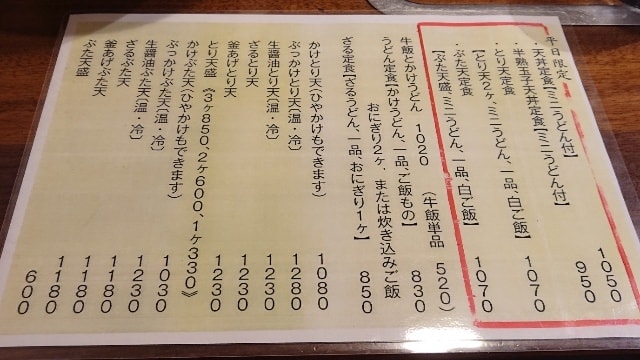 平日限定
・天丼定食【ミニうどん付】 1050
・半熟玉子天丼定食【ミニうどん付】 950
・とり天定食
【とり天2ケ、ミニうどん、一品、白ご飯】 1070
・ぶた天定食
【ぶた天盛、ミニうどん、一品、白ご飯】 1070
牛飯とかけうどん 1020 (牛飯単品 520)
うどん定食【かけうどん、一品、ご飯もの】 830
おにぎり2ケ、または炊き込みご飯
ざる定食【ざるうどん、一品、おにぎり1ケ】 850
かけとり天(ひやかけもできます) 1080
ぶっかけとり天(温・冷) 1280
生醤油とり天(温・冷) 1230
ざるとり天 1230
釜あげとり天 1230
とり天盛 《3ケ850、2ケ600、1ケ330》
かけぶた天(ひやかけもできます) 1030
ぶっかけぶた天(温・冷) 1230
生醤油ぶた天(温・冷) 1180
ざるぶた天 1180
釜あげぶた天 1180
ぶた天盛 600